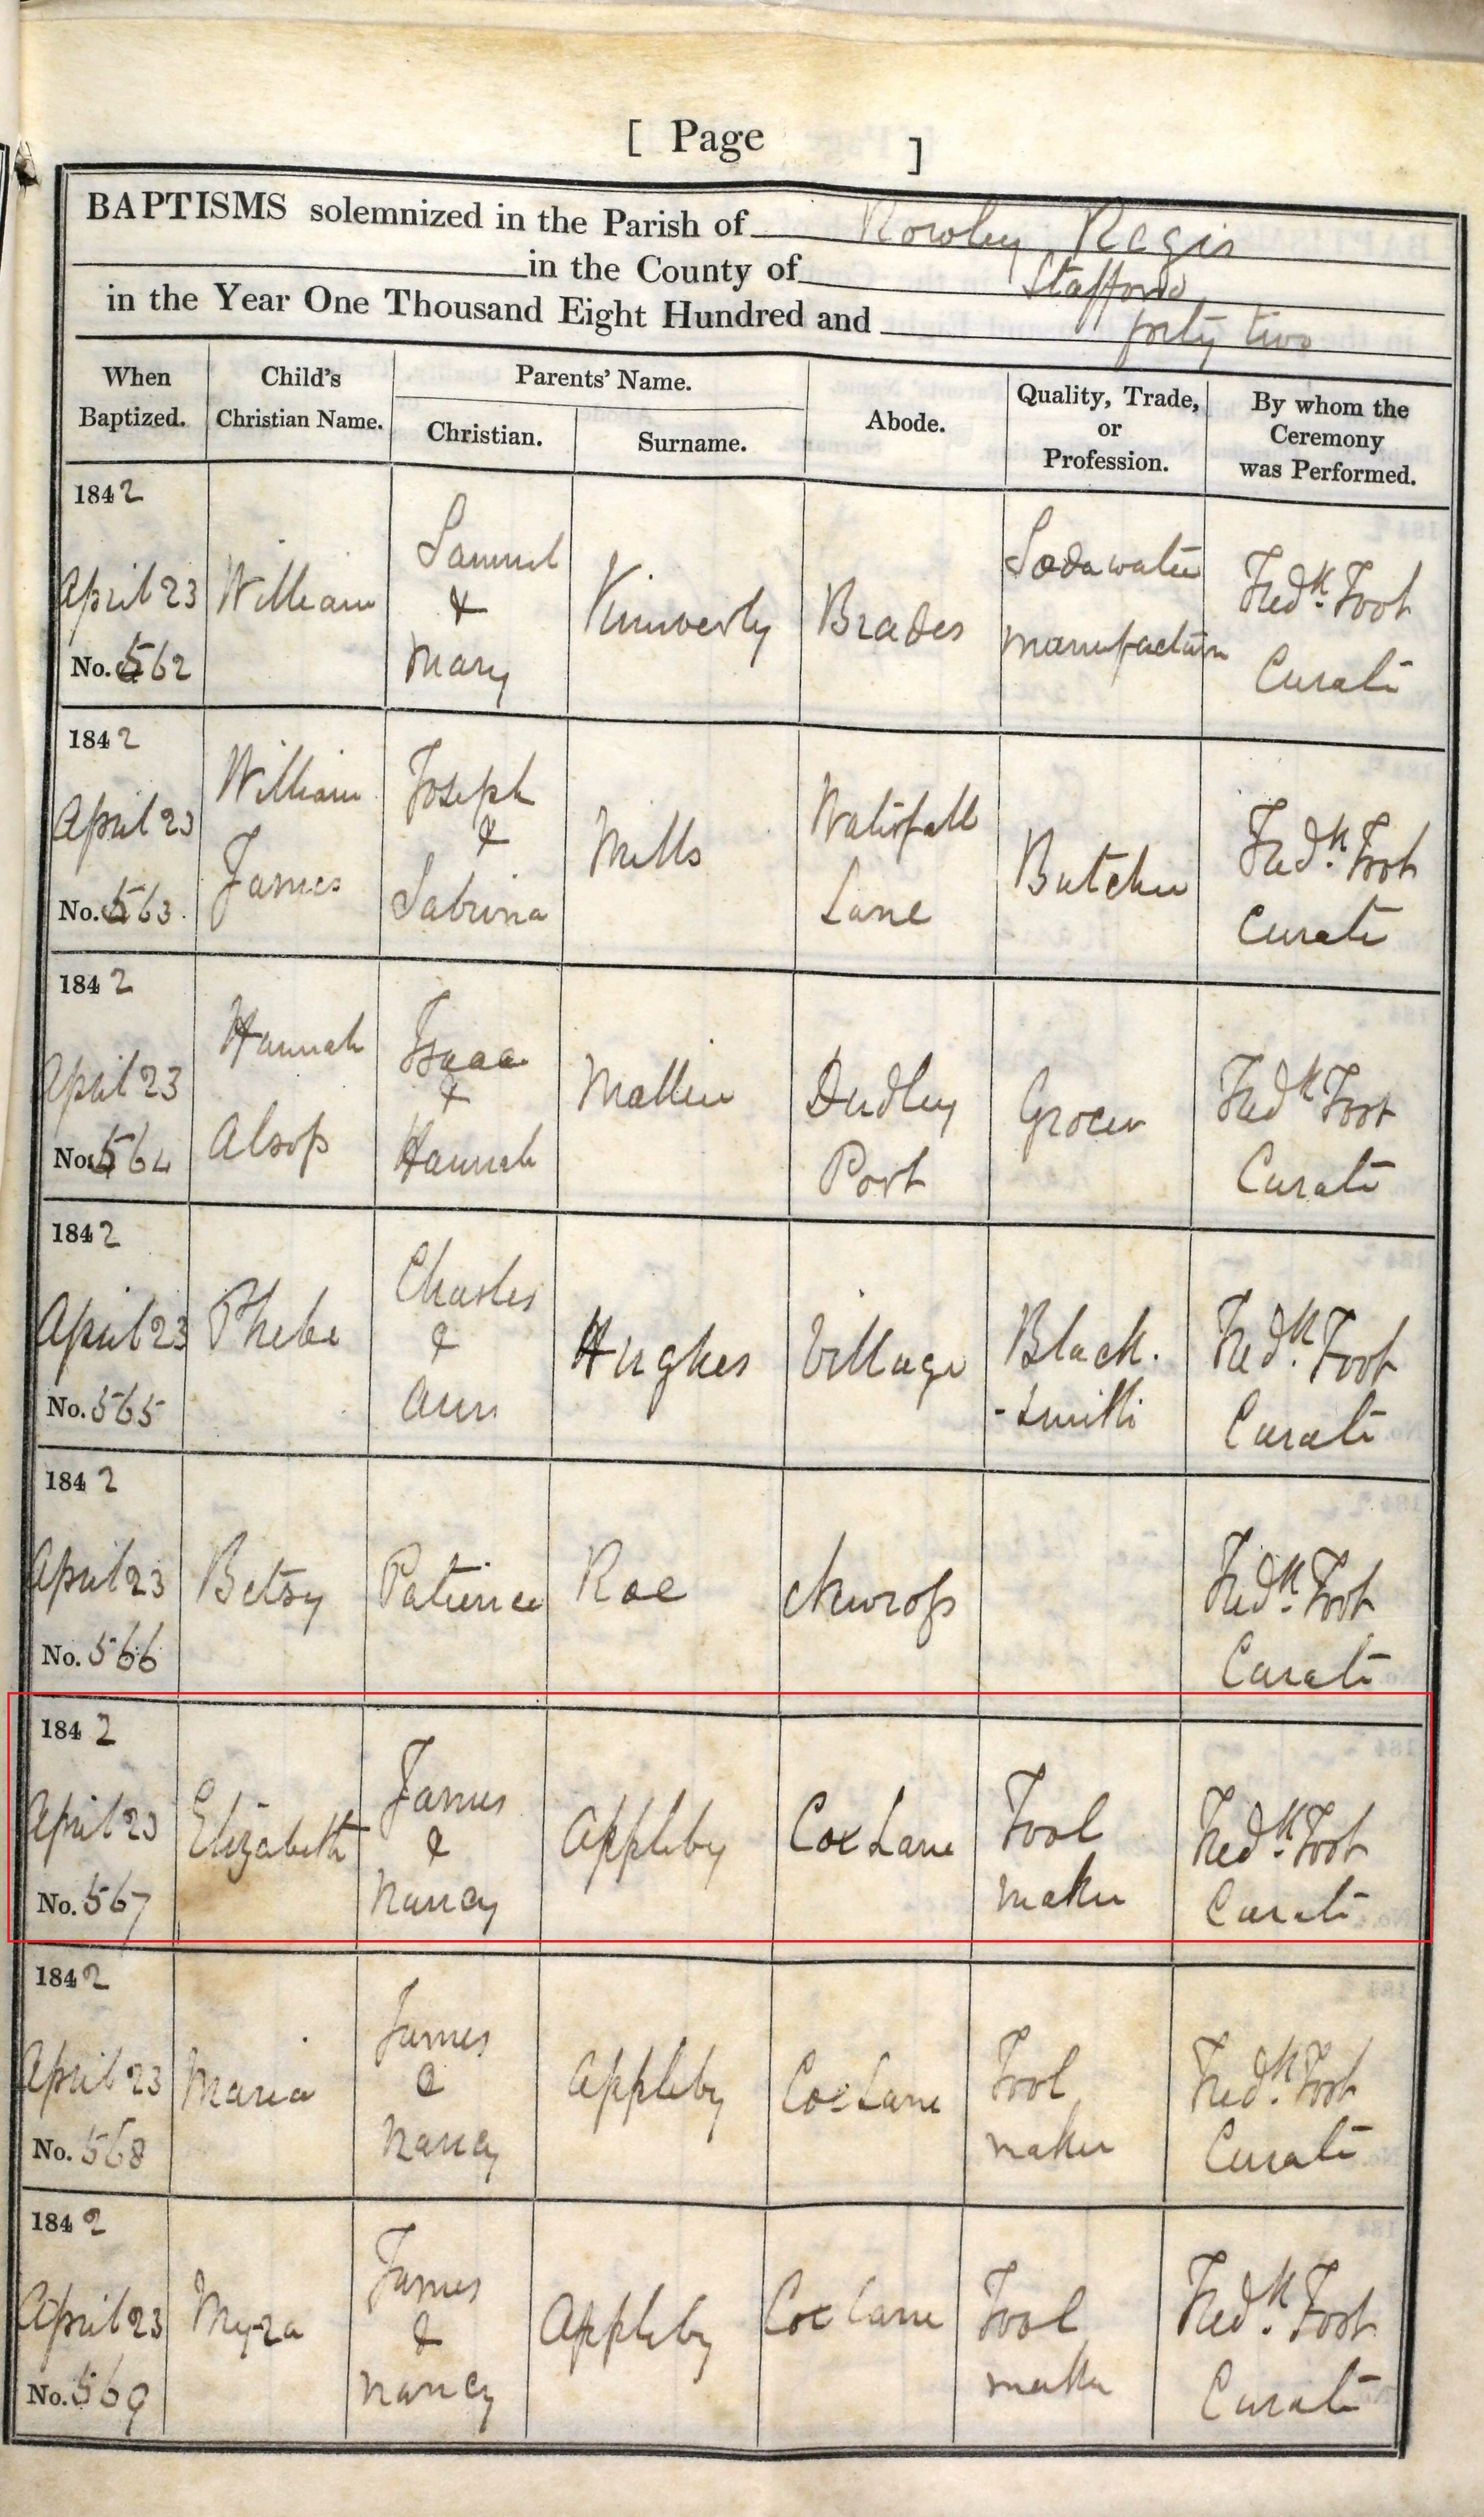 [ Page ]
BAPTISMS solemnized in the Parish of Rowley Regis
in the County of Stafford
in the Year One Thousand Eight Hundred and forty two
When Baptized. Child's Christian Name. Parents' Name. Christian. Surname. Abode. Quality, Trade, or Profession. By whom the Ceremony was Performed.
1842
April 23
No. 562
William
Samuel
&
Mary
Brades
Sodawater
Fredk. Foot
Curate
1842
April 23
No. 563
William
James
Joseph
&
Sabrina
Mills
Waterfall
Lane
Butcher
Fredk. Foot
Curate
1842
April 23
No. 564
Hannah
Alsop
Isaac
&
Hannah
Mallin
Dudley
Port
Grocer
Fredk. Foot
Curate
1842
April 23
No. 565
Phebe
Charles
&
Ann
Hughes
Village
Black
-smith
Fredk. Foot
Curate
1842
April 23
No. 566
Betsy
Patience
Roe
Fredk. Foot
Curate
1842
April 23
No. 567
Elizabeth
James
&
Nancy
Appleby
Coxlane
Tool
maker
Fredk. Foot
Curate
1842
April 23
No. 568
Maria
James
&
Nancy
Appleby
Coxlane
Tool
maker
Fredk. Foot
Curate
1842
April 23
No. 569
Myra
James
&
Nancy
Appleby
Coxlane
Tool
maker
Fredk. Foot
Curate